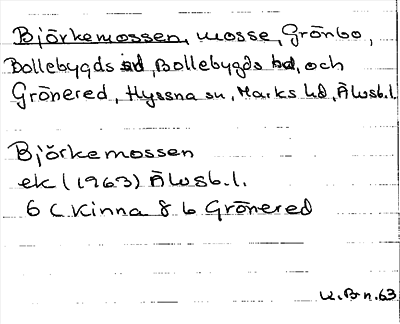 Björkemossen, mosse, Grönbo,
Bollebygds sd, Bollebygds hd, och
Grönered, Hyssna sn, Marks hd, Älvsb.l.
Björkemossen
ek (1963) Älvsb.l.
6 C Kinna 8 b Grönered
K.B-n.63